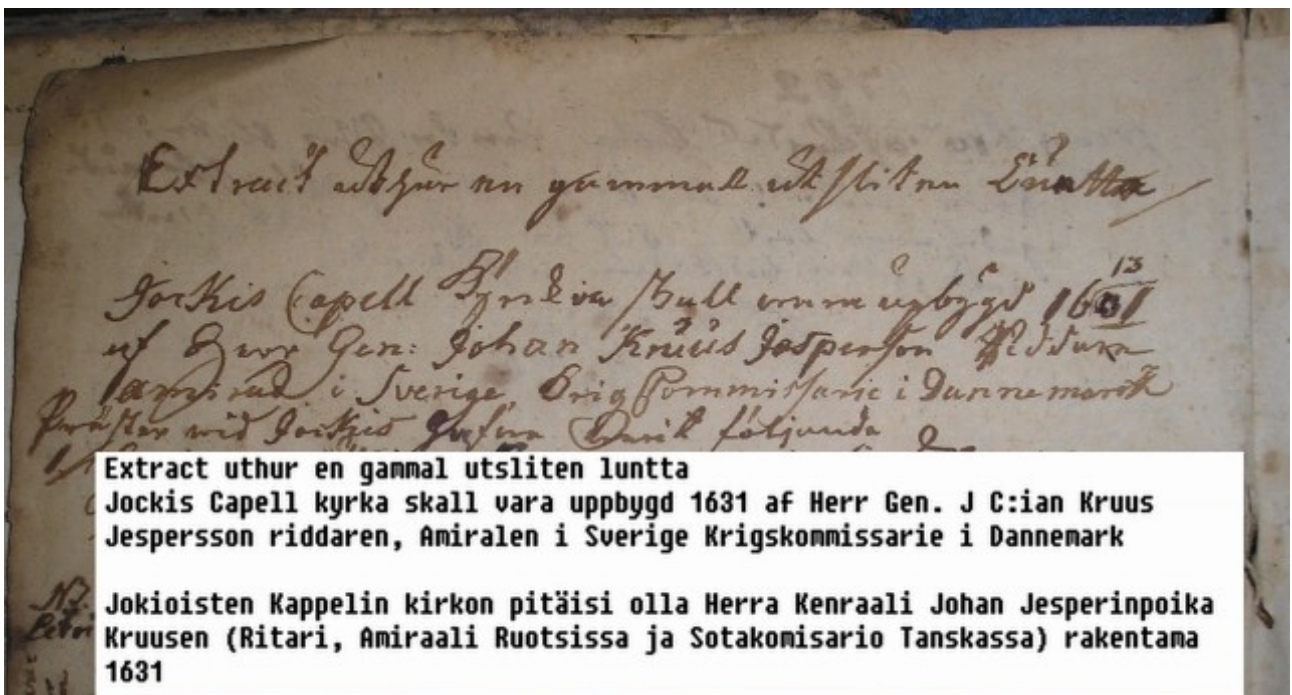 Extract uthur en gammall utsliten Luntta
13
Jockis Capell Kyrckia skall vara upbygd 1631
af Herr Gen: Johan Kruus Jesperson Riddare
amiral i Sverige, Krigs Commissarie i Dannemarck
Präster wid Jockis hafwa warit följande
Extract uthur en gammal utsliten luntta
Jockis Capell kyrka skall vara uppbygd 1631 af Herr Gen. J C:ian Kruus
Jespersson riddaren, Amiralen i Sverige Krigskommissarie i Dannemark
Jokioisten Kappelin kirkon pitäisi olla Herra Kenraali Johan Jesperinpoika
Kruusen (Ritari, Amiraali Ruotsissa ja Sotakomisario Tanskassa) rakentama
1631